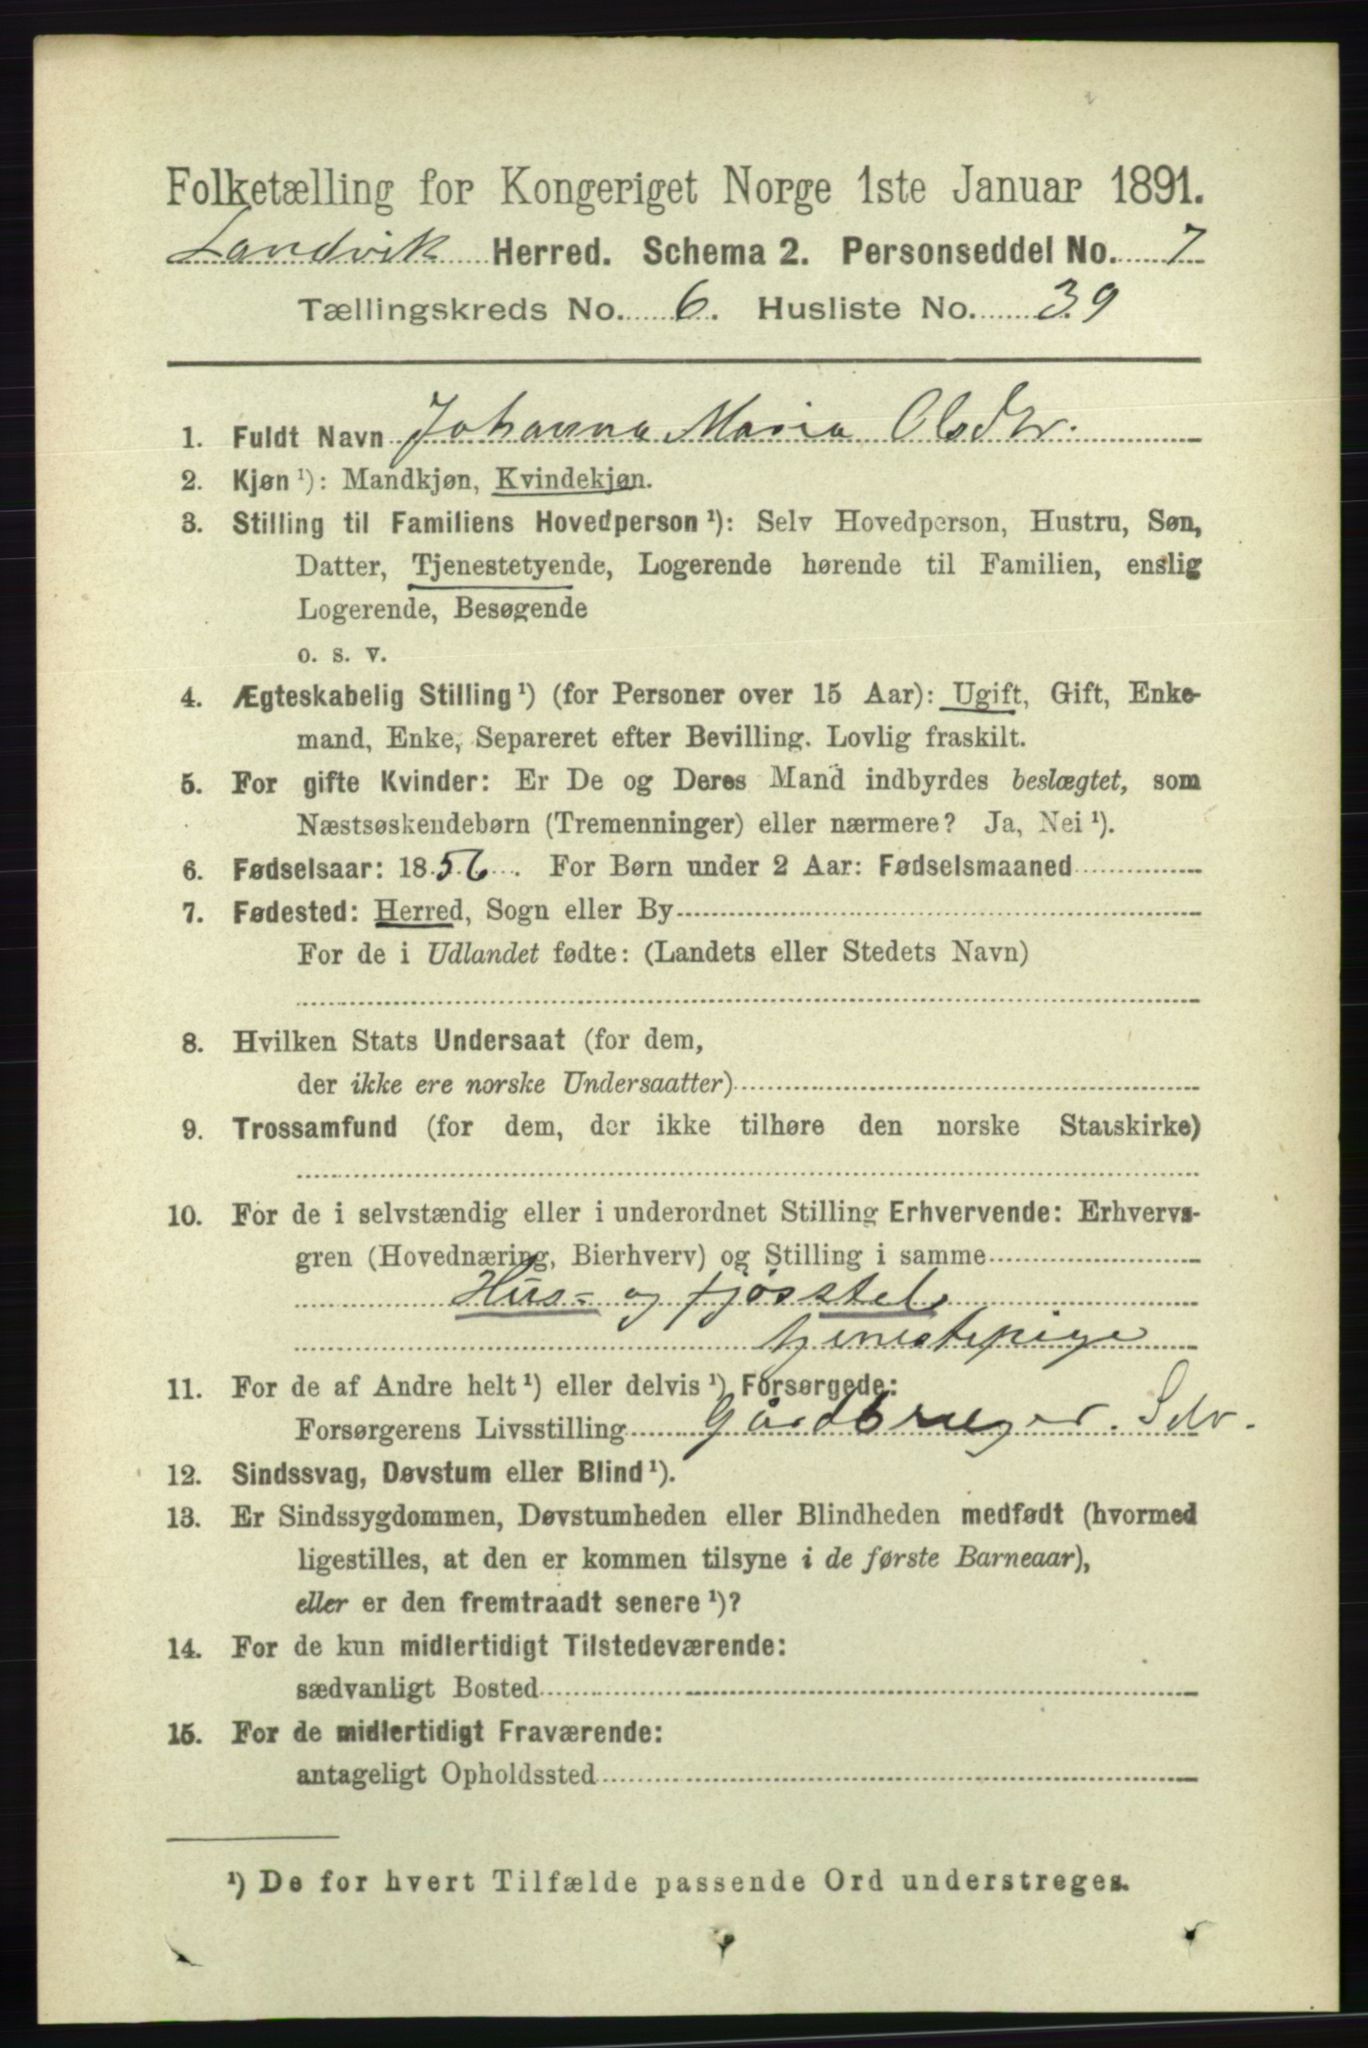 Folketælling for Kongeriget Norge 1ste Januar 1891.
Landvik Herred. Schema 2. Personseddel No. 7
Tællingskreds No. 6. Husliste No. 39
1. Fuldt Navn Johanna Maria Olsdtr.
2. Kjøn ¹): Mandkjøn, Kvindekjøn.
3. Stilling til Familiens Hovedperson ¹): Selv Hovedperson, Hustru, Søn,
Datter, Tjenestetyende, Logerende hørende til Familien, enslig
Logerende, Besøgende
o. s. v.
4. Ægteskabelig Stilling ¹) (for Personer over 15 Aar): Ugift, Gift, Enke-
mand, Enke, Separeret efter Bevilling. Lovlig fraskilt.
5. For gifte Kvinder: Er De og Deres Mand indbyrdes beslægtet, som
Næstsøskendebørn (Tremenninger) eller nærmere? Ja, Nei ¹).
6. Fødselsaar: 1856. For Børn under 2 Aar: Fødselsmaaned
7. Fødested: Herred, Sogn eller By
For de i Udlandet fødte: (Landets eller Stedets Navn)
8. Hvilken Stats Undersaat (for dem,
der ikke ere norske Undersaatter)
9. Trossamfund (for dem, der ikke tilhøre den norske Statskirke)
10. For de i selvstændig eller i underordnet Stilling Erhvervende: Erhvervs-
gren (Hovednæring, Bierhverv) og Stilling i samme
Hus- og fjøsstel
tjenestepige
11. For de af Andre helt ¹) eller delvis ¹) Forsørgede:
Forsørgerens Livsstilling Gårdbruger. Selv.
12. Sindssvag, Døvstum eller Blind ¹).
13. Er Sindssygdommen, Døvstumheden eller Blindheden medfødt (hvormed
ligestilles, at den er kommen tilsyne i de første Barneaar),
eller er den fremtraadt senere ¹)?
14. For de kun midlertidigt Tilstedeværende:
sædvanligt Bosted
15. For de midlertidigt Fraværende:
antageligt Opholdssted
¹) De for hvert Tilfælde passende Ord understreges.